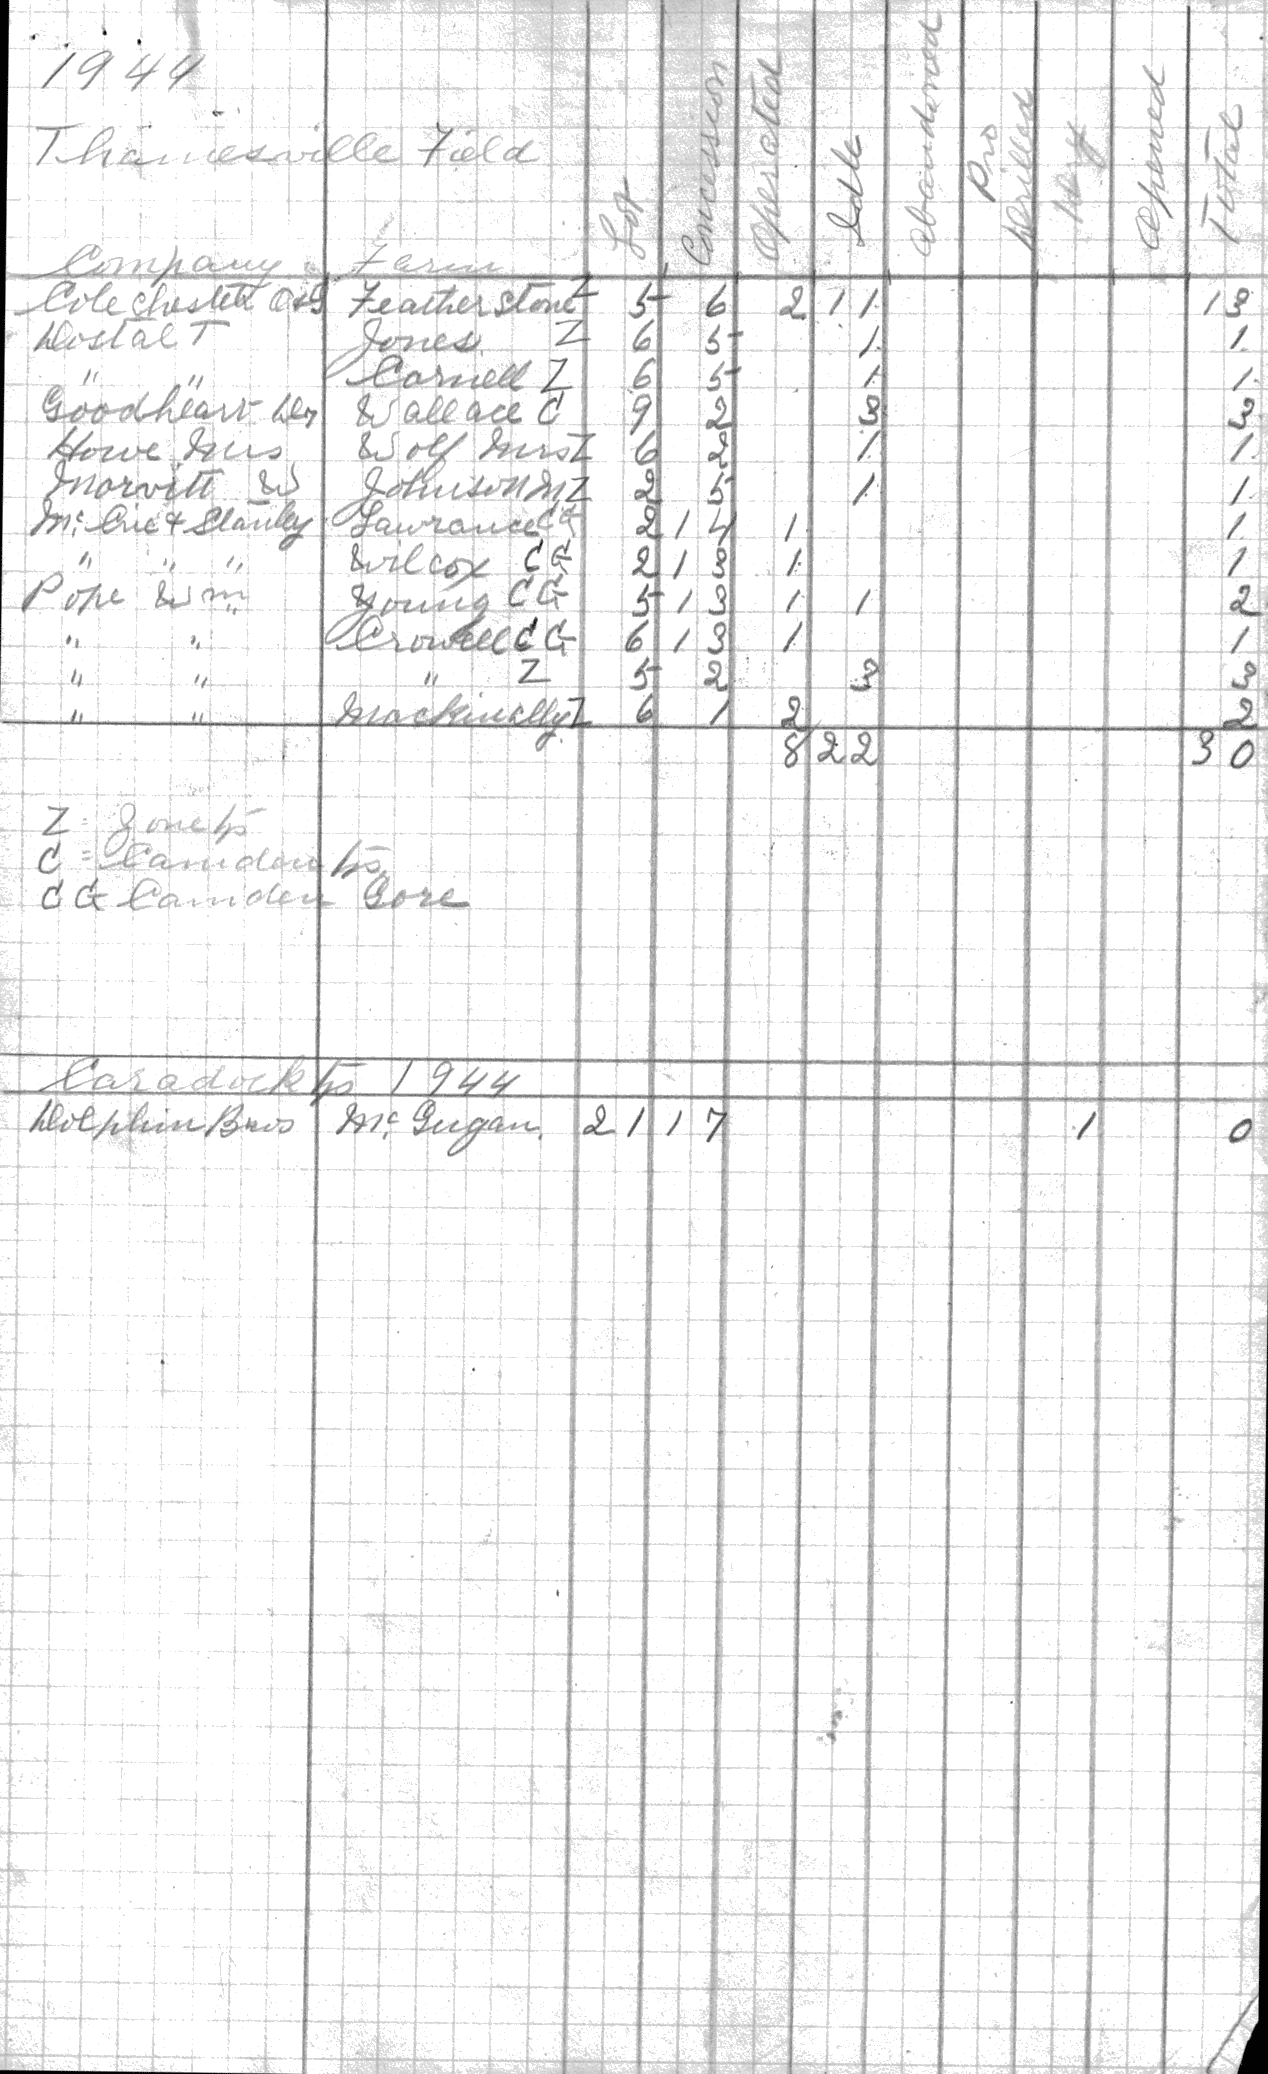 1944
Thamesville Field
Company Farm Lot Concession Operated Idle Abandoned Pro Drilled Dry Opened Total
Colechester O&G Featherstone Z 5 6 2 11 13
Dostal T Jones Z 6 5 1 1
" " Carnell Z 6 5 1 1
Goodheart Wallace C 9 2 3 3
Howe Mrs Wolf Mrs Z 6 2 1 1
Morvitt W Johnson M Z 2 5 1 1
Mc Crie & Stanley Lawrance CG 2 14 1 1
" " " Wilcox CG 2 13 1 1
Pope Wm " Young CG 5 13 1 1 2
" " Crowell CG 6 13 1 1
" " " Z 5 2 3 3
" " Mackinally Z 6 1 2 2
8 22 30
Z = Zone tps
C = Camden tps
CG Camden Gore
Caradock tps 1944
Dolphin Bros Mc Gugan. 21 17 1 0